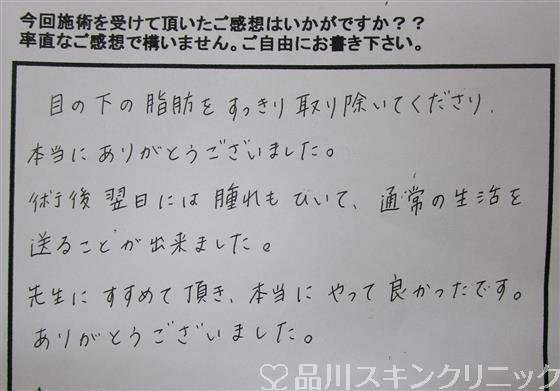 今回施術を受けて頂いたご感想はいかがですか？？
率直なご感想で構いません。ご自由にお書き下さい。
目の下の脂肪をすっきり取り除いてくださり、
本当にありがとうございました。
術後翌日には腫れもひいて、通常の生活を
送ることが出来ました。
先生にすすめて頂き、本当にやって良かったです。
ありがとうございました。
品川スキンクリニック